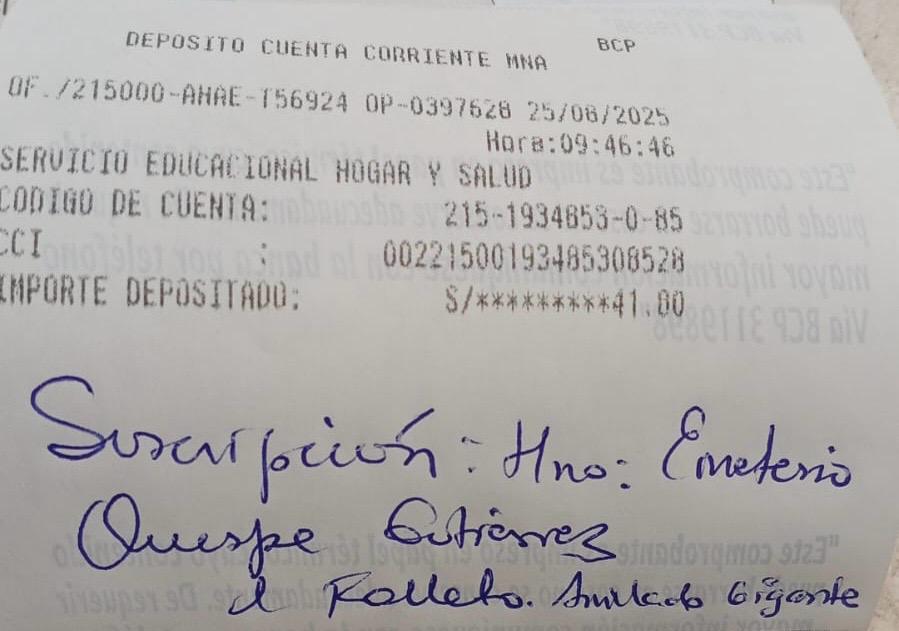 DEPOSITO CUENTA CORRIENTE MNA BCP
OF./215000-AHAE-T56924 OP-0397628 25/08/2025
Hora:09:46:46
SERVICIO EDUCACIONAL HOGAR Y SALUD
CODIGO DE CUENTA: 215-1934853-0-85
CCI : 00221500193485308528
IMPORTE DEPOSITADO: S/*********41.00
Suscripción: Hno: Emeterio
Quispe Gutiérrez
d Folleto. Anillado Gigante